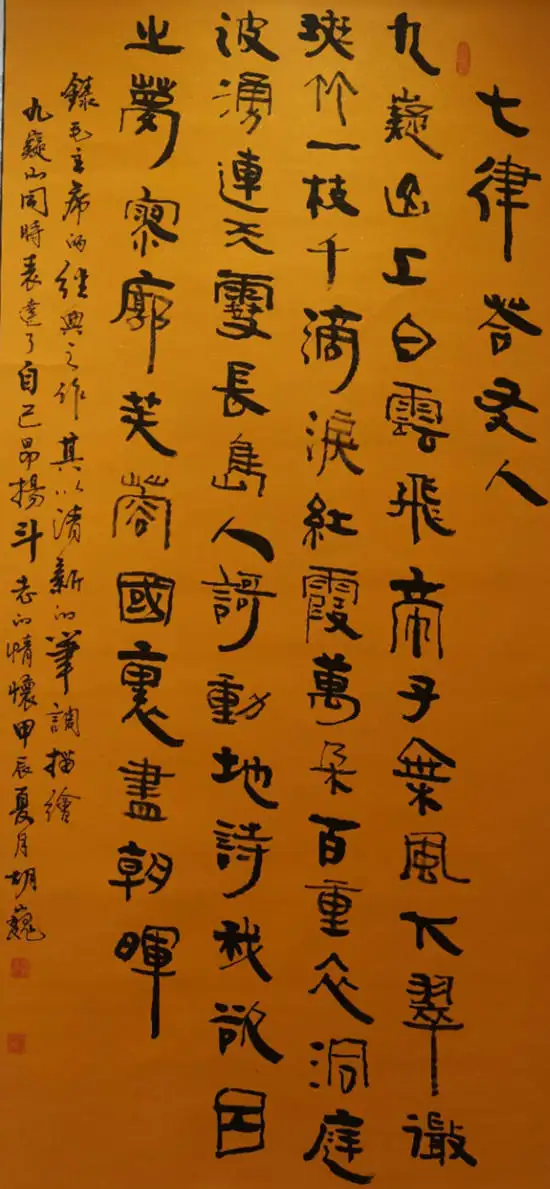 七律 荅友人
九嶷山上白雲飛帝子乗風下翠微
斑竹一枝千滴淚紅霞萬朵百重衣洞庭
波湧連天雪長島人謌動地詩我欲因
之夢寥廓芙蓉國裏盡朝暉
錄毛主席的經典之作其以清新的筆調描繪
九嶷山同時表達了自己昂揚斗志的情懷甲辰夏月胡巍